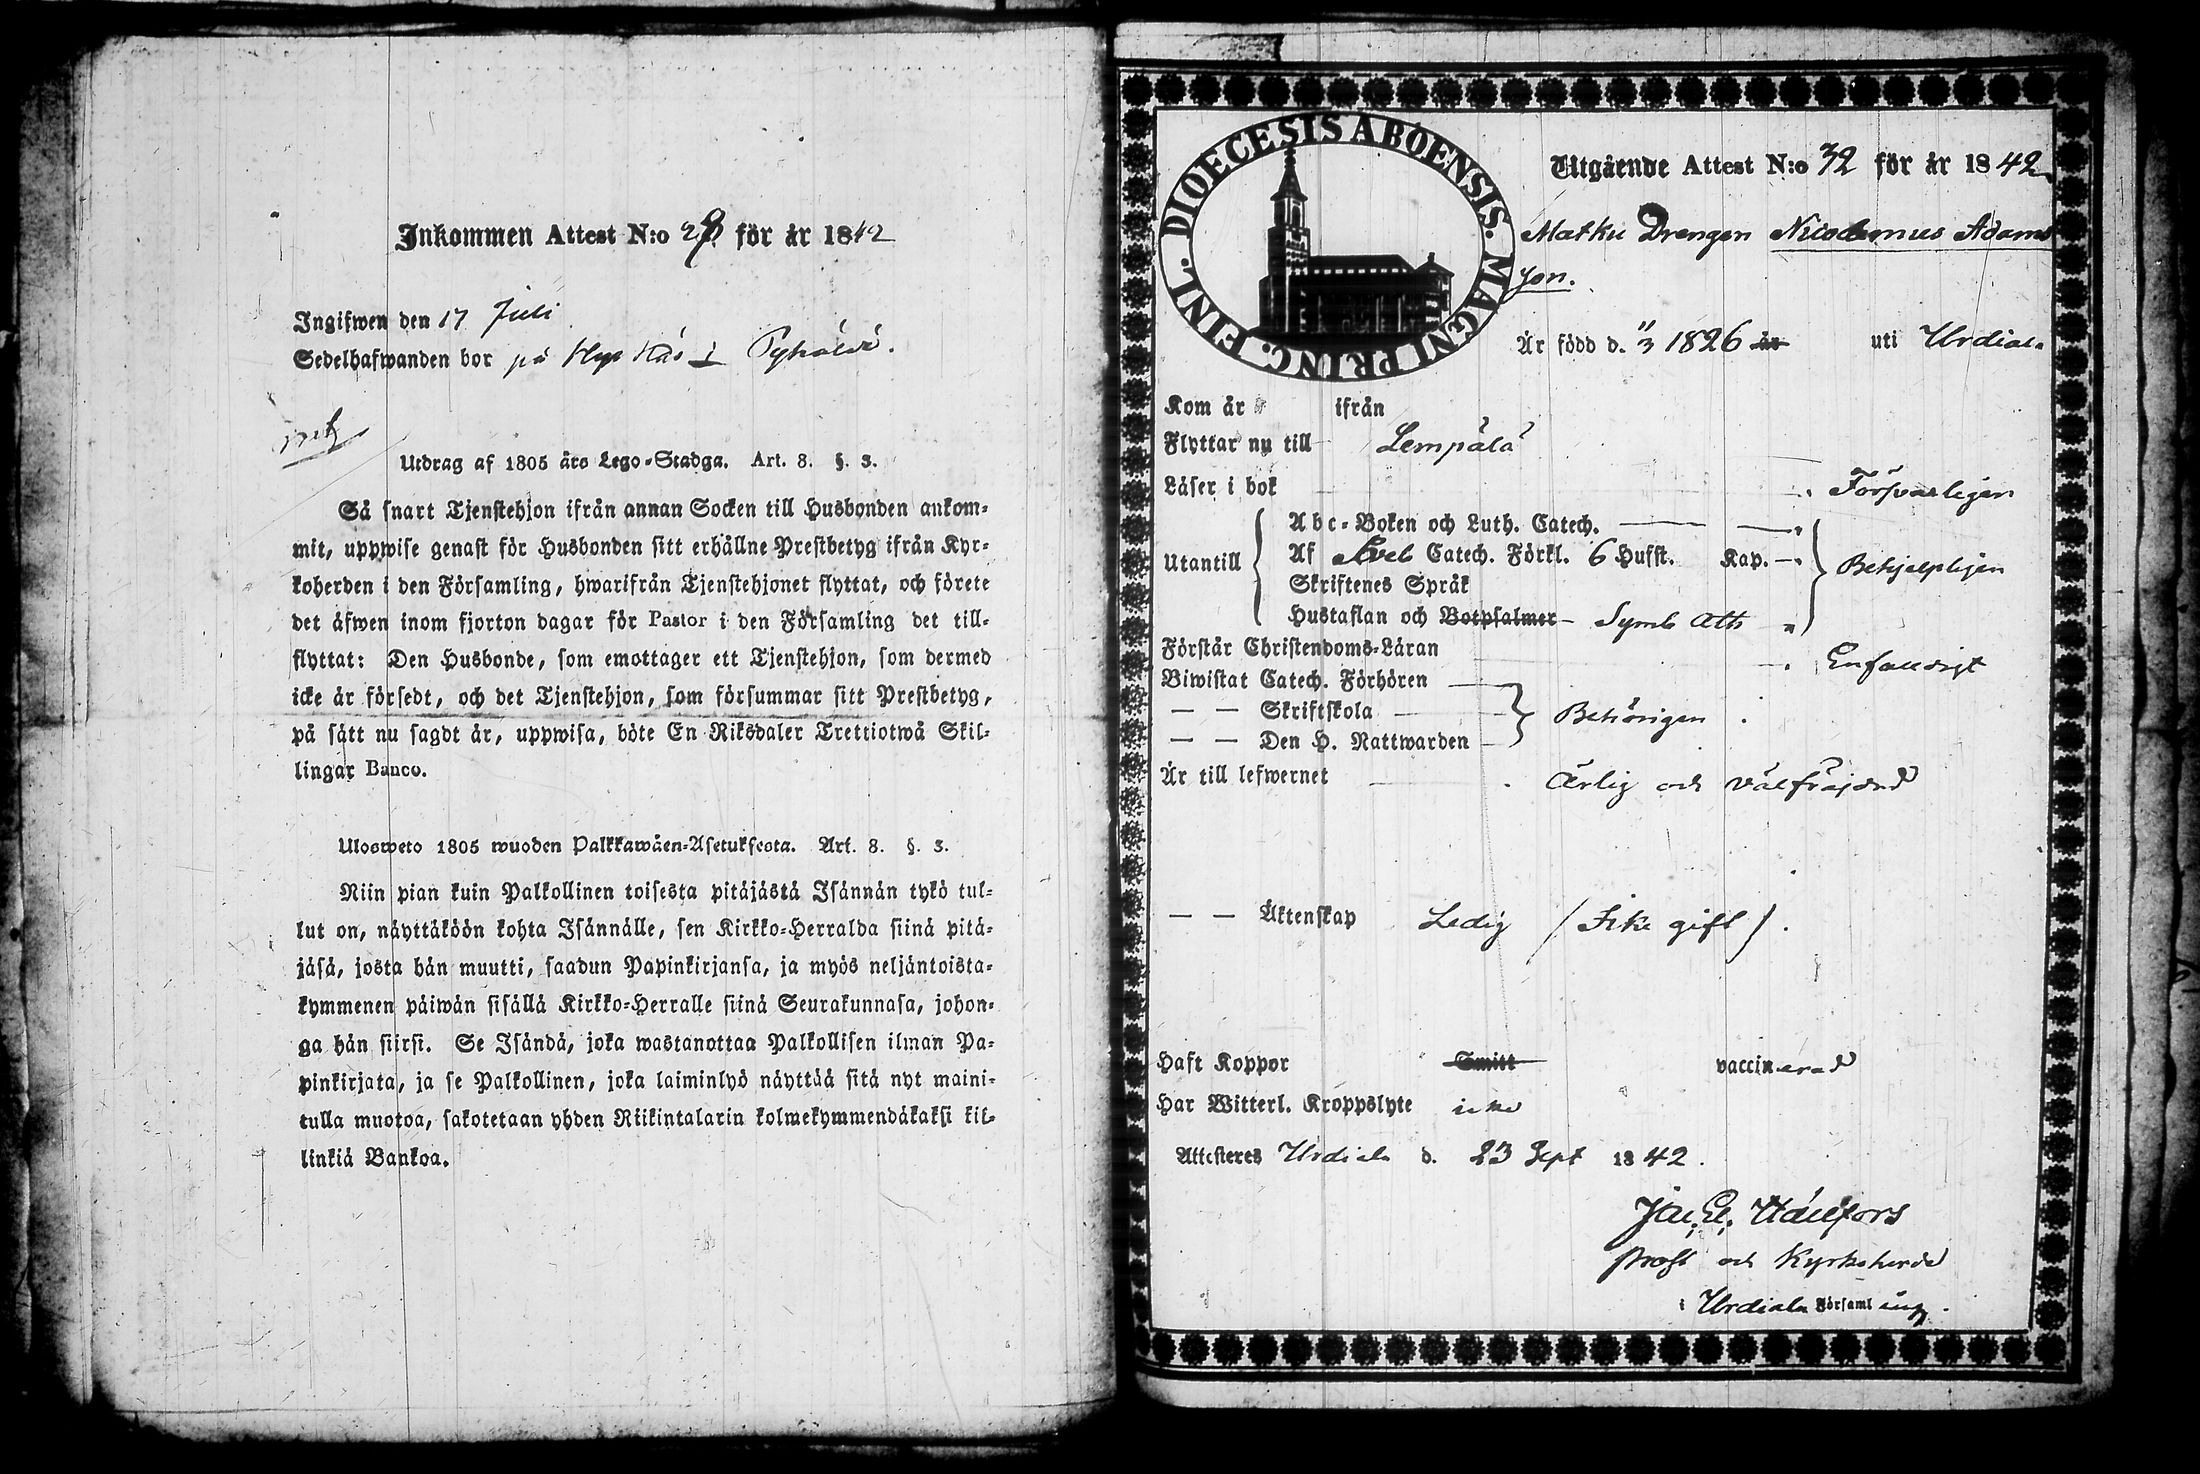 Inkommen Attest N:o för år 1842
Ingifwen den 17 Juli
Sedelhafwanden bor på
Utdrag af 1805 års Lego-Stadga. Art. 8. §. 3.
Så snart Tjenstehjon ifrån annan Socken till Husbonden ankom-
mit, uppwise genast för Husbonden sitt erhållne Prestbetyg ifrån Kyr-
koherden i den Församling, hwarifrån Tjenstehjonet flyttat, och förete
det äfwen inom fjorton dagar för Pastor i den Församling det till-
flyttat: Den Husbonde, som emottager ett Tjenstehjon, som dermed
icke är försedt, och det Tjenstehjon, som försummar sitt Prestbetyg,
på sätt nu sagdt är, uppwisa, böte En Riksdaler Trettiotwå Skil-
lingar Banco.
Ulosweto 1805 wuoden Palkkawäen-Asetuksesta. Art. 8. §. 3.
Niin pian kuin Palkollinen toisesta pitäjästä Isännän tykö tul-
lut on, näyttäköön kohta Isännälle, sen Kirkko-Herralda siinä pitä-
jäsä, josta hän muutti, saadun Papinkirjansa, ja myös neljäntoista-
kymmenen päiwän sisällä Kirkko-Herralle siinä Seurakunnasa, johon-
ga hän siirsi. Se Isändä, joka wastanottaa Palkollisen ilman Pa-
pinkirjata, ja se Palkollinen, joka laiminlyö näyttää sitä nyt maini-
tulla muotoa, sakotetaan yhden Riikintalarin kolmekymmendäkaksi kil-
linkiä Bankoa.
DIOECESIS ABOENSIS. MAGNI PRINC. FINL.
Utgående Attest N:o 32 för år 1842
Matku Drengen Nicodemus Adams
son.
Är född d. 11/3 1826 år uti Urdiala
Kom år ifrån
Flyttar nu till Lempälä
Läser i bok Försvarligen
Utantill
Abc-Boken och Luth. Catech.
Af Sveb Catech. Förkl. 6 Hufst. Kap. Behjelpligen
Skriftenes Språk
Hustaflan och Botpsalmer Symb Ath
Förstår Christendoms-Läran Enfaldigt
Biwistat Catech. Förhören
— — Skriftskola Behörigen
— — Den H. Nattwarden
Är till lefwernet Ärlig och välfräjdad
— — Äktenskap Ledig (Icke gift).
Haft Koppor Smitt vaccinerad
Har Witterl. Kroppslyte icke
Attesteres Urdiala d. 23 Sept 1842.
Prost och Kyrkoherde
i Urdiala Församling.